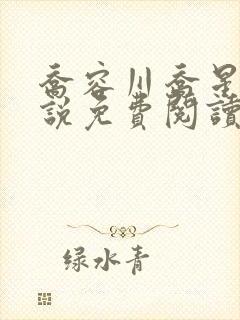 喬容川喬是
說免費閱讀
绿水青